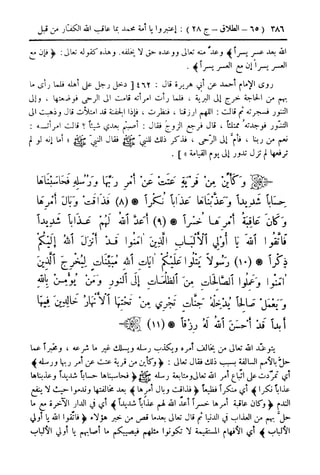 ٣٨٦ ﴿ (٦٥) - الطلاق - ج ٢٨ ﴾ : إعتبروا يا أمة محمد بما عاقب الله الكفار من قبل
الله بعد عسر يسراً﴾ وعدٌ منه تعالى ووعده حق لا يخلفه. وهذه كقوله تعالى: ﴿فإن مع
العسر يسراً إن مع العسر يسراً﴾.
روى الإمام أحمد عن أبي هريرة قال : ٤٦٢ [ دخل رجل على أهله فلما رأى ما
بهم من الحاجة خرج إلى البرية ، فلما رأت امرأته قامت الى الرحى فوضعتها ، وإلى
التنور فسجرته ثم قالت : اللهم ارزقنا ، فنظرت ، فإذا الجفنة قد امتلأت قال وذهبت الى
التنور فوجدته ممتلئاً ، قال فرجع الزوج فقال : أصبتم بعدي شيئاً ؟ قالت امرأته :
نعم من ربنا ، فأمَّ إلى الرحى ، فذكر ذلك للنبي ﷺ فقال النبي ﷺ ، أما إنه لو لم
ترفعها لم تزل تدور إلى يوم القيامة ] .
وَكَأَيِّنْ مِنْ قَرْيَةٍ عَتَتْ عَنْ أَمْرِ رَبِّهَا وَرُسُلِهِ فَحَاسَبْنَاهَا
حِسَاباً شَدِيداً وَعَذَّبْنَاهَا عَذَاباً نُكْراً ﴿٨﴾ فَذَاقَتْ وَبَالَ أَمْرِهَا
وَكَانَ عَاقِبَةُ أَمْرِهَا خُسْراً ﴿٩﴾ أَعَدَّ اللهُ لَهُمْ عَذَاباً شَدِيداً
فَاتَّقُوا اللهَ يَا أُولِي الْأَلْبَابِ الَّذِينَ آمَنُوا قَدْ أَنْزَلَ اللهُ إِلَيْكُمْ
ذِكْراً ﴿١٠﴾ رَسُولاً يَتْلُو عَلَيْكُمْ آيَاتِ اللهِ مُبَيِّنَاتٍ لِيُخْرِجَ الَّذِينَ
آمَنُوا وَعَمِلُوا الصَّالِحَاتِ مِنَ الظُّلُمَاتِ إِلَى النُّورِ وَمَنْ يُؤْمِنْ بِاللهِ
وَيَعْمَلْ صَالِحاً يُدْخِلْهُ جَنَّاتٍ تَجْرِي مِنْ تَحْتِهَا الْأَنْهَارُ خَالِدِينَ فِيهَا
أَبَداً قَدْ أَحْسَنَ اللهُ لَهُ رِزْقاً ﴿١١﴾
يتوعّد الله تعالى من يخالف أمره ويكذب رسله ويسلك غير ما شرعه ، ومخبراً عما
حلّ بالأمم السالفة بسبب ذلك فقال تعالى : ﴿وكأين من قرية عتت عن أمر ربها ورسله﴾
أي تمردت على اتّباع أمر الله تعالى ومتابعة رسله ﷺ ﴿فحاسبناها حساباً شديداً وعذبناها
عذاباً نكراً﴾ أي منكراً فظيعاً ﴿فذاقت وبال أمرها﴾ بعد مخالفتها وندموا حيث لا ينفع
الندم ﴿وكان عاقبة أمرها خسراً أعدّ الله لهم عذاباً شديداً﴾ أي في الدار الآخرة مع ما
حلّ بهم من العذاب في الدنيا ثم قال تعالى بعدما قص من خبر هؤلاء ﴿فاتقوا الله يا أولي
الألباب﴾ أي الأفهام المستقيمة لا تكونوا مثلهم فيصيبكم ما أصابهم يا أولي الألباب